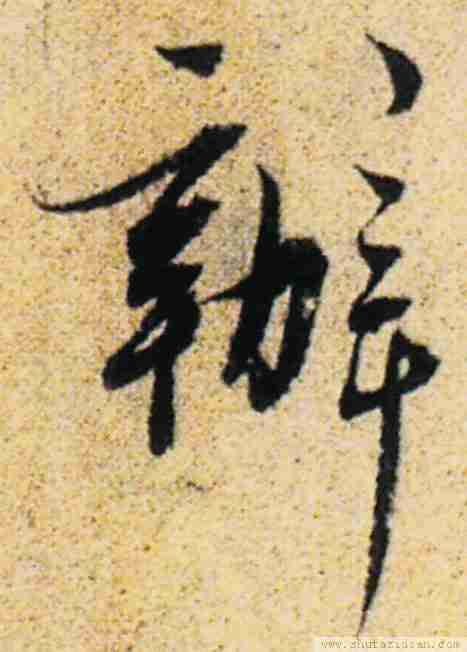 辦
www.shufazidian.com